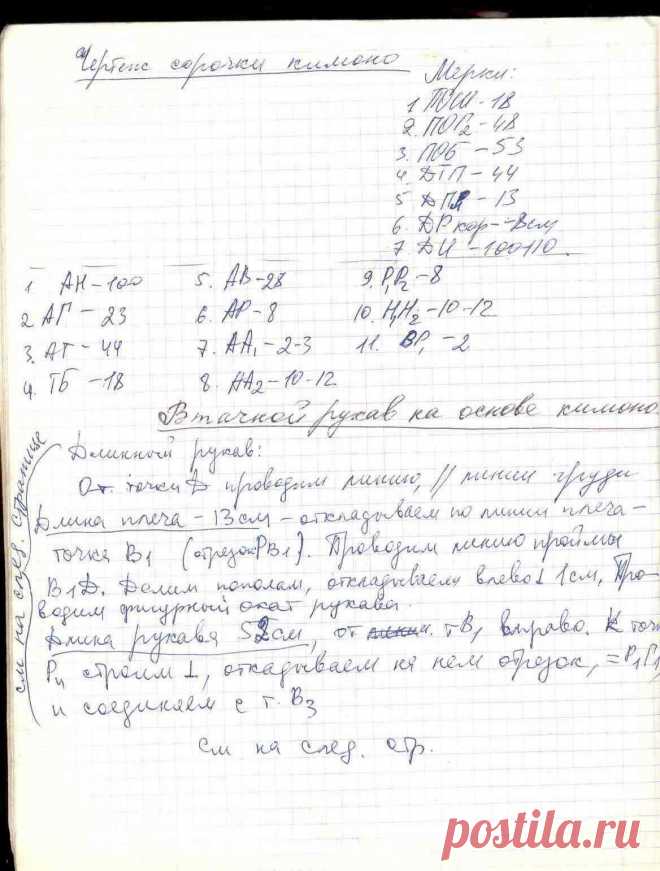 Чертеж сорочки кимоно
Мерки:
1 ПОШ - 18
2. ПОГ2 - 48
3. ПОБ - 53
4. ДТП - 44
5 ДПл - 13
6. ДР кор - 8см
7. ДИ - 100110.
1 АН - 100
2 АГ - 23
3. АТ - 44
4. ТБ - 18
5. АВ - 28
6. АР - 8
7. АА1 - 2-3
8. АА2 - 10-12
9. Р1Р2 - 8
10. Н1Н2 - 10-12
11. ВР1 - 2
Втачной рукав на основе кимоно
Длинный рукав:
От точки D проводим линию, // линии груди
Длина плеча - 13 см - откладываем по линии плеча -
точка В1 (отрезок РВ1). Проводим линию проймы
В1D. Делим пополам, откладываем влево ⊥ 1см, Про-
водим фигурный окат рукава.
Длина рукава 52см, от т В1 вправо. К точ
строим ⊥, откадываем на нем отрезок, = Р1Г1
и соединяем с т. В3
см на след. стр.
см на след. странице
postila.ru